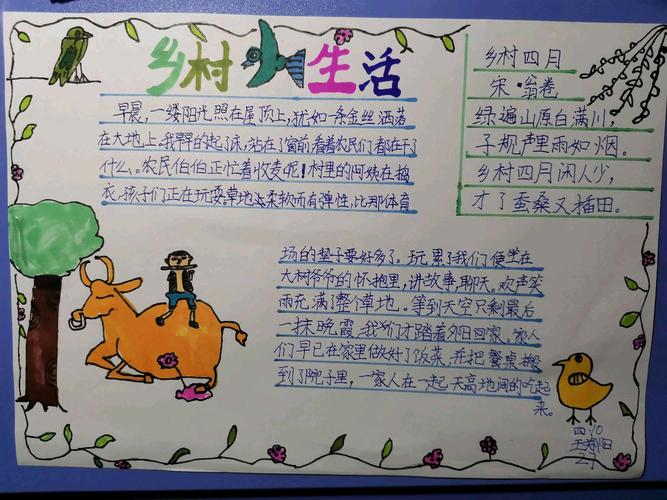 乡村生活
早晨，一缕阳光照在屋顶上，犹如一条金丝洒落
在大地上。我早早的起了床，站在了窗前看着农民们都在干了
什么。农民伯伯正忙着收麦呢！村里的阿姨在摘
衣，孩子们正在玩耍。草地上柔软而有弹性，比那体育
场的垫子要好多了。玩累了我们便坐在
大树爷爷的怀抱里，讲故事，聊天。欢声笑
雨充满了整个草地。等到天空只剩最后
一抹晚霞，我们才踏着夕阳回家。家人
们早已在家里做好了饭菜，并把餐桌搬
到了院子里，一家人在一起天高地阔的吃起
来。
乡村四月
宋·翁卷
绿遍山原白满川，
子规声里雨如烟。
乡村四月闲人少，
才了蚕桑又插田。
四.10